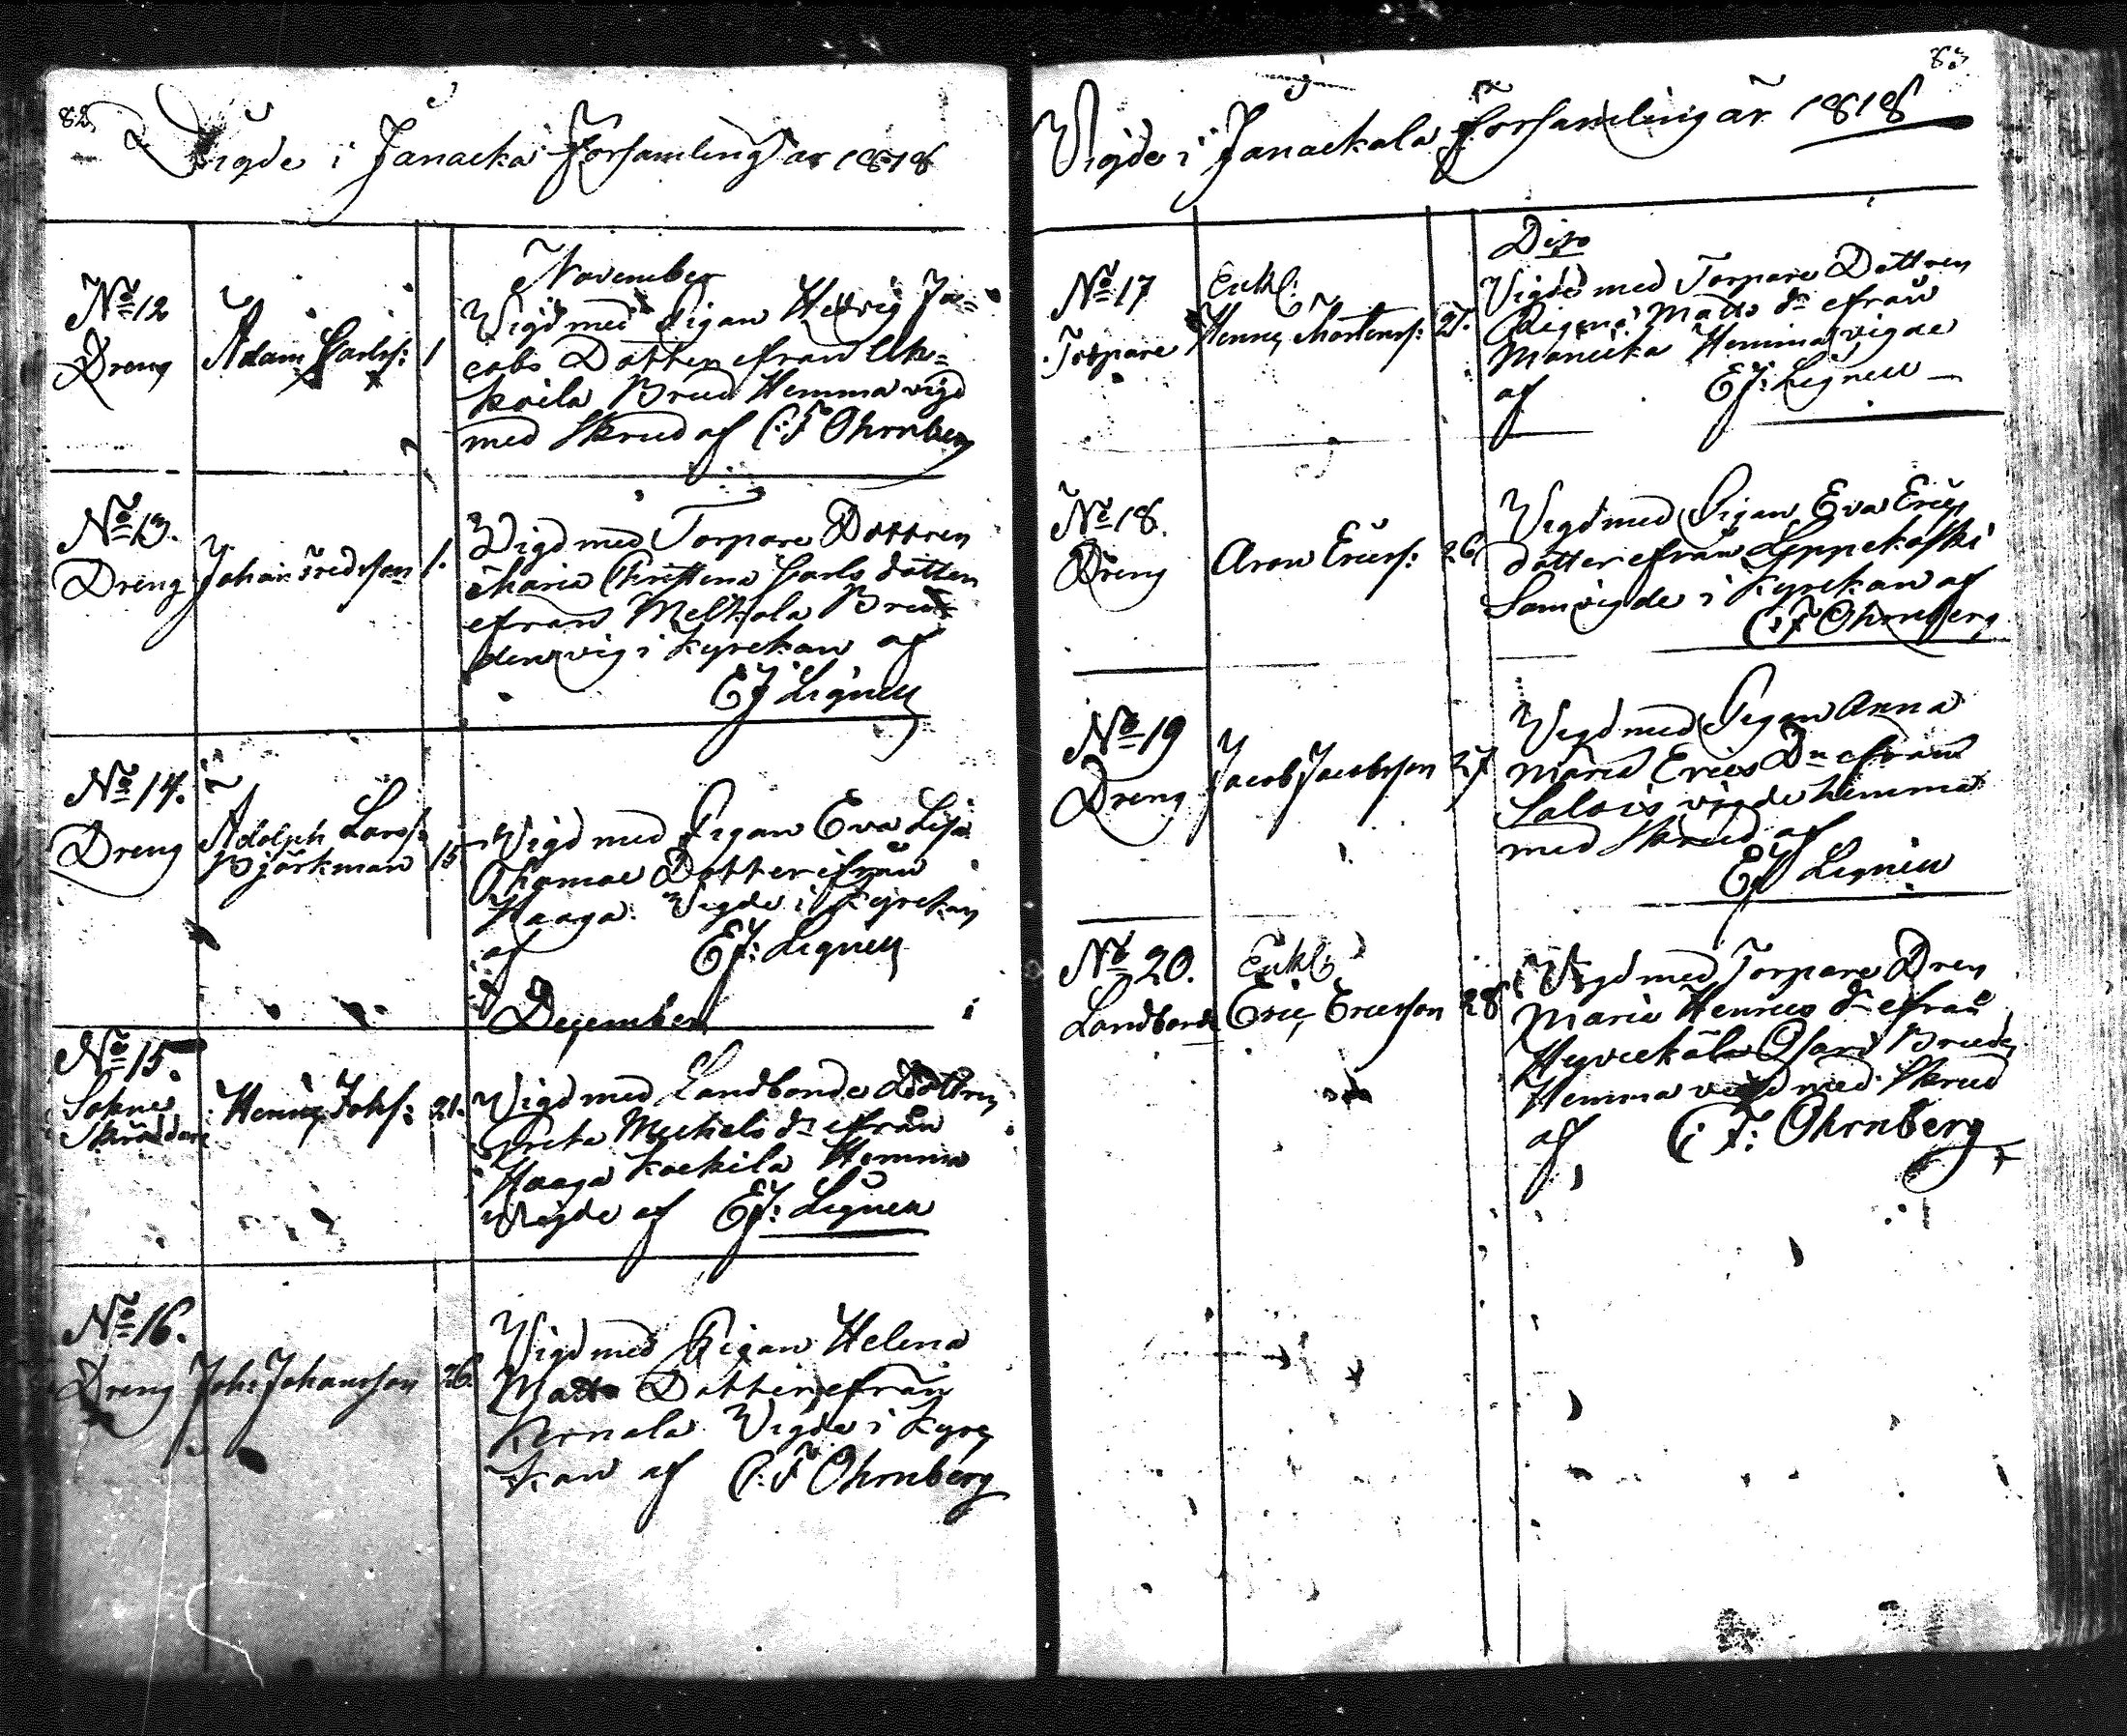 82
Vigde i Janacka Församling år 1818
November
No 12
Dreng
Adam Carlss: 1
Vigd med Pigan Hedvig Ja=
cobs Dotter efrån
koila Brud Hemma vigd
med Skrud af C: F Ohrnberg
No 13.
Dreng
Johan Fredrsson 1.
Vigd med Torpare Dottren
Maria Christina Carls dotter
efrån Melkola Bru=
den vig i Kyrckan af
EJ Lignell
No 14.
Dreng
Adolph Larss:
Björkman 15
Vigd med Pigan Eva Lisa
Thomae Dotter ifrån
Haaga. Vigde i Kyrckan
af EJ: Lignell
December
No 15.
Sokne
Skräddare
Henric Johs: 21.
Vigd med Landbonde Dottren
Greta Michels dr efrån
Haaga Hemma
Vigde af EJ: Lignell
No 16.
Dreng
Joh: Johansson 26.
Vigd med Pigan Helena
Matts Dotter efrån
Kernala Vigde i Kyrc
kan af C: F Ohrnberg
83
Vigde i Janackala Församling år 1818
Dito
No 17
Torpare
Enkl:
Henric Mortenss: 21.
Vigde med Torpare Dottren
Regina Matts dr efrån
Hemma vigde
af EJ: Lignell
No 18.
Dreng
Aron Ericss: 26
Vigd med Pigan Eva Erics
dotter efrån Leppekoski
Samvigde i Kyrckan af
C: F Ohrnberg
No 19
Dreng
Jacob Jacobsson 27
Vigd med Pigan Anna
Maria Erics Dr efrån
Salois vigde hemma
med Skrud af
EJ Lignell
No 20.
Landbonde
Enkl:
Eric Ericsson 28
Vigd med Torpare Dren
Maria Henrics dr efrån
Bruden
Hemma vigd med Skrud
af C: F: Ohrnberg